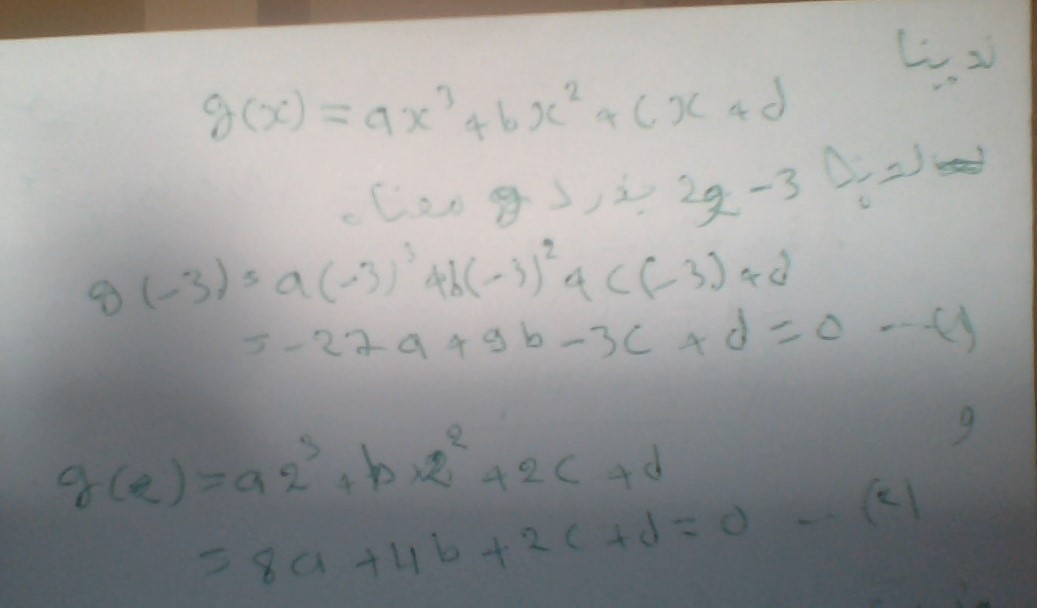 لدينا
g(x) = ax³ + bx² + cx + d
لدينا -3 و2 جذر لـ g معناه
g(-3) = a(-3)³ + b(-3)² + c(-3) + d
= -27a + 9b - 3c + d = 0 ---(1)
و
g(2) = a2³ + b×2² + 2c + d
= 8a + 4b + 2c + d = 0 --- (2)